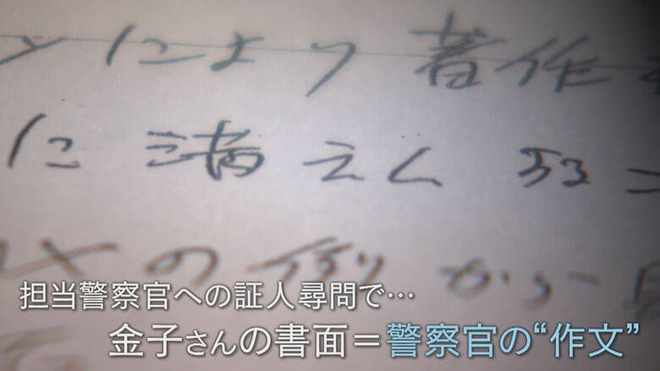 により著作
に満えん
の例から
担当警察官への証人尋問で…
金子さんの書面＝警察官の“作文”